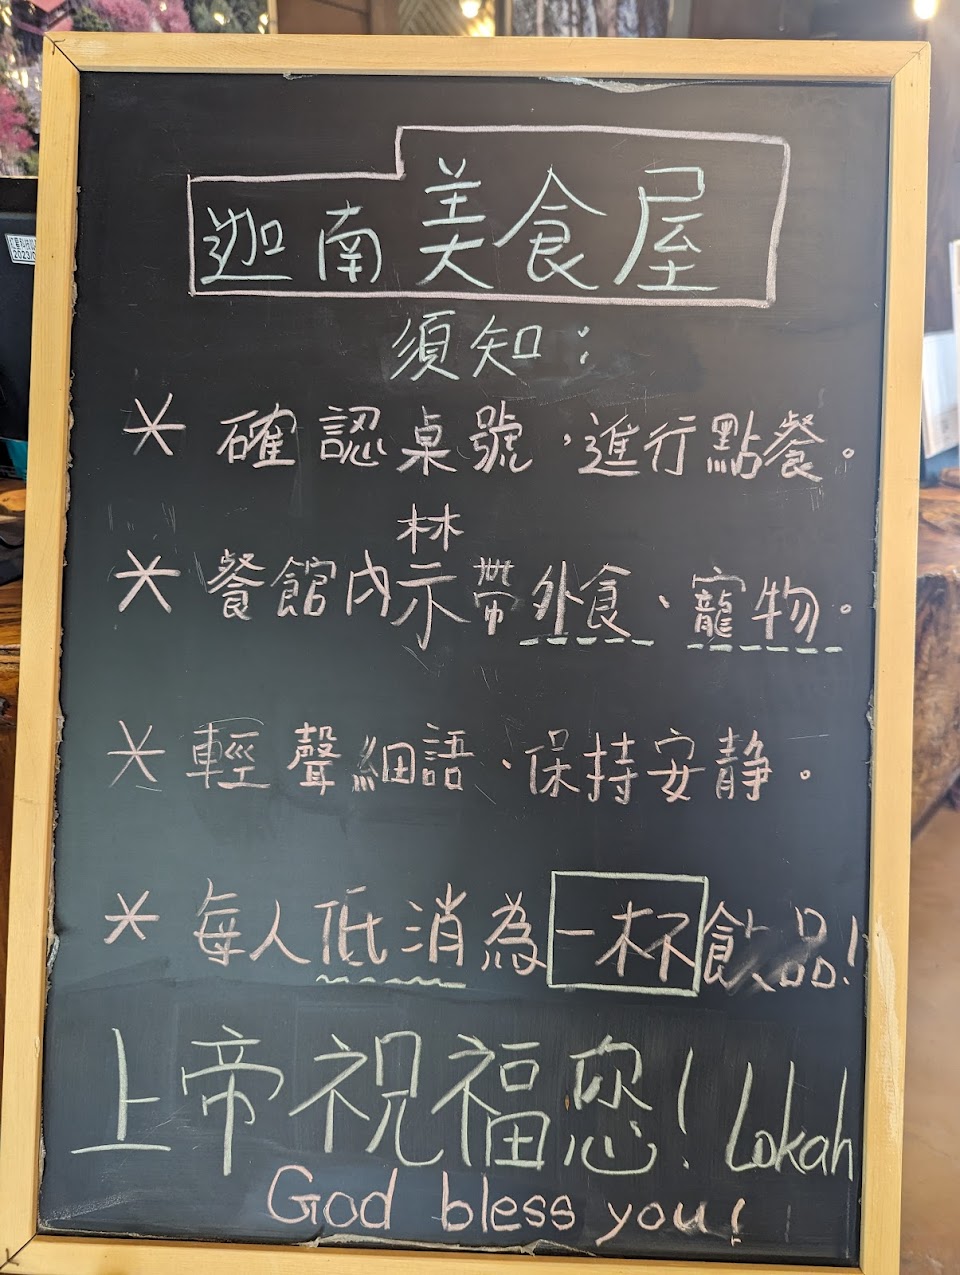 迦南美食屋
須知：
* 確認桌號，進行點餐。
* 餐館內禁帶外食、寵物。
* 輕聲細語、保持安靜。
* 每人低消為一杯飲品!
上帝祝福您! Lokah
God bless you!